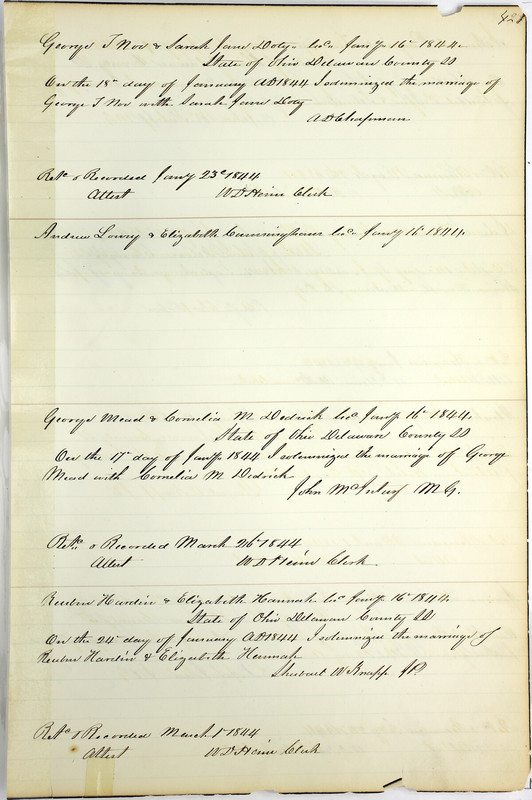 421
George T Nor & Sarah Jane Doty Lic. Jany 16th 1844.
State of Ohio Delaware County SS
On the 18th day of January AD 1844 I solemnized the marriage of
George T Nor with Sarah Jane Doty
A D Chapman
Retd & Recorded Jany 23d 1844
Attest W D Heim Clerk
Andrew Lowry & Elizabeth Cunningham Lic. Jany 16th 1844.
George Mead & Cornelia M Dedrick Lic. Jany 16th 1844.
State of Ohio Delaware County SS
On the 17th day of Jany 1844 I solemnized the marriage of George
Mead with Cornelia M Dedrick
John M M.G.
Retd & Recorded March 26th 1844
Attest W D Heim Clerk
Reuben Hardin & Elizabeth Hannah Lic. Jany 16th 1844.
State of Ohio Delaware County SS
On the 24th day of January AD 1844 I solemnized the marriage of
Reuben Hardin & Elizabeth Hannah
W Knapp JP
Retd & Recorded March 1 1844
Attest W D Heim Clerk